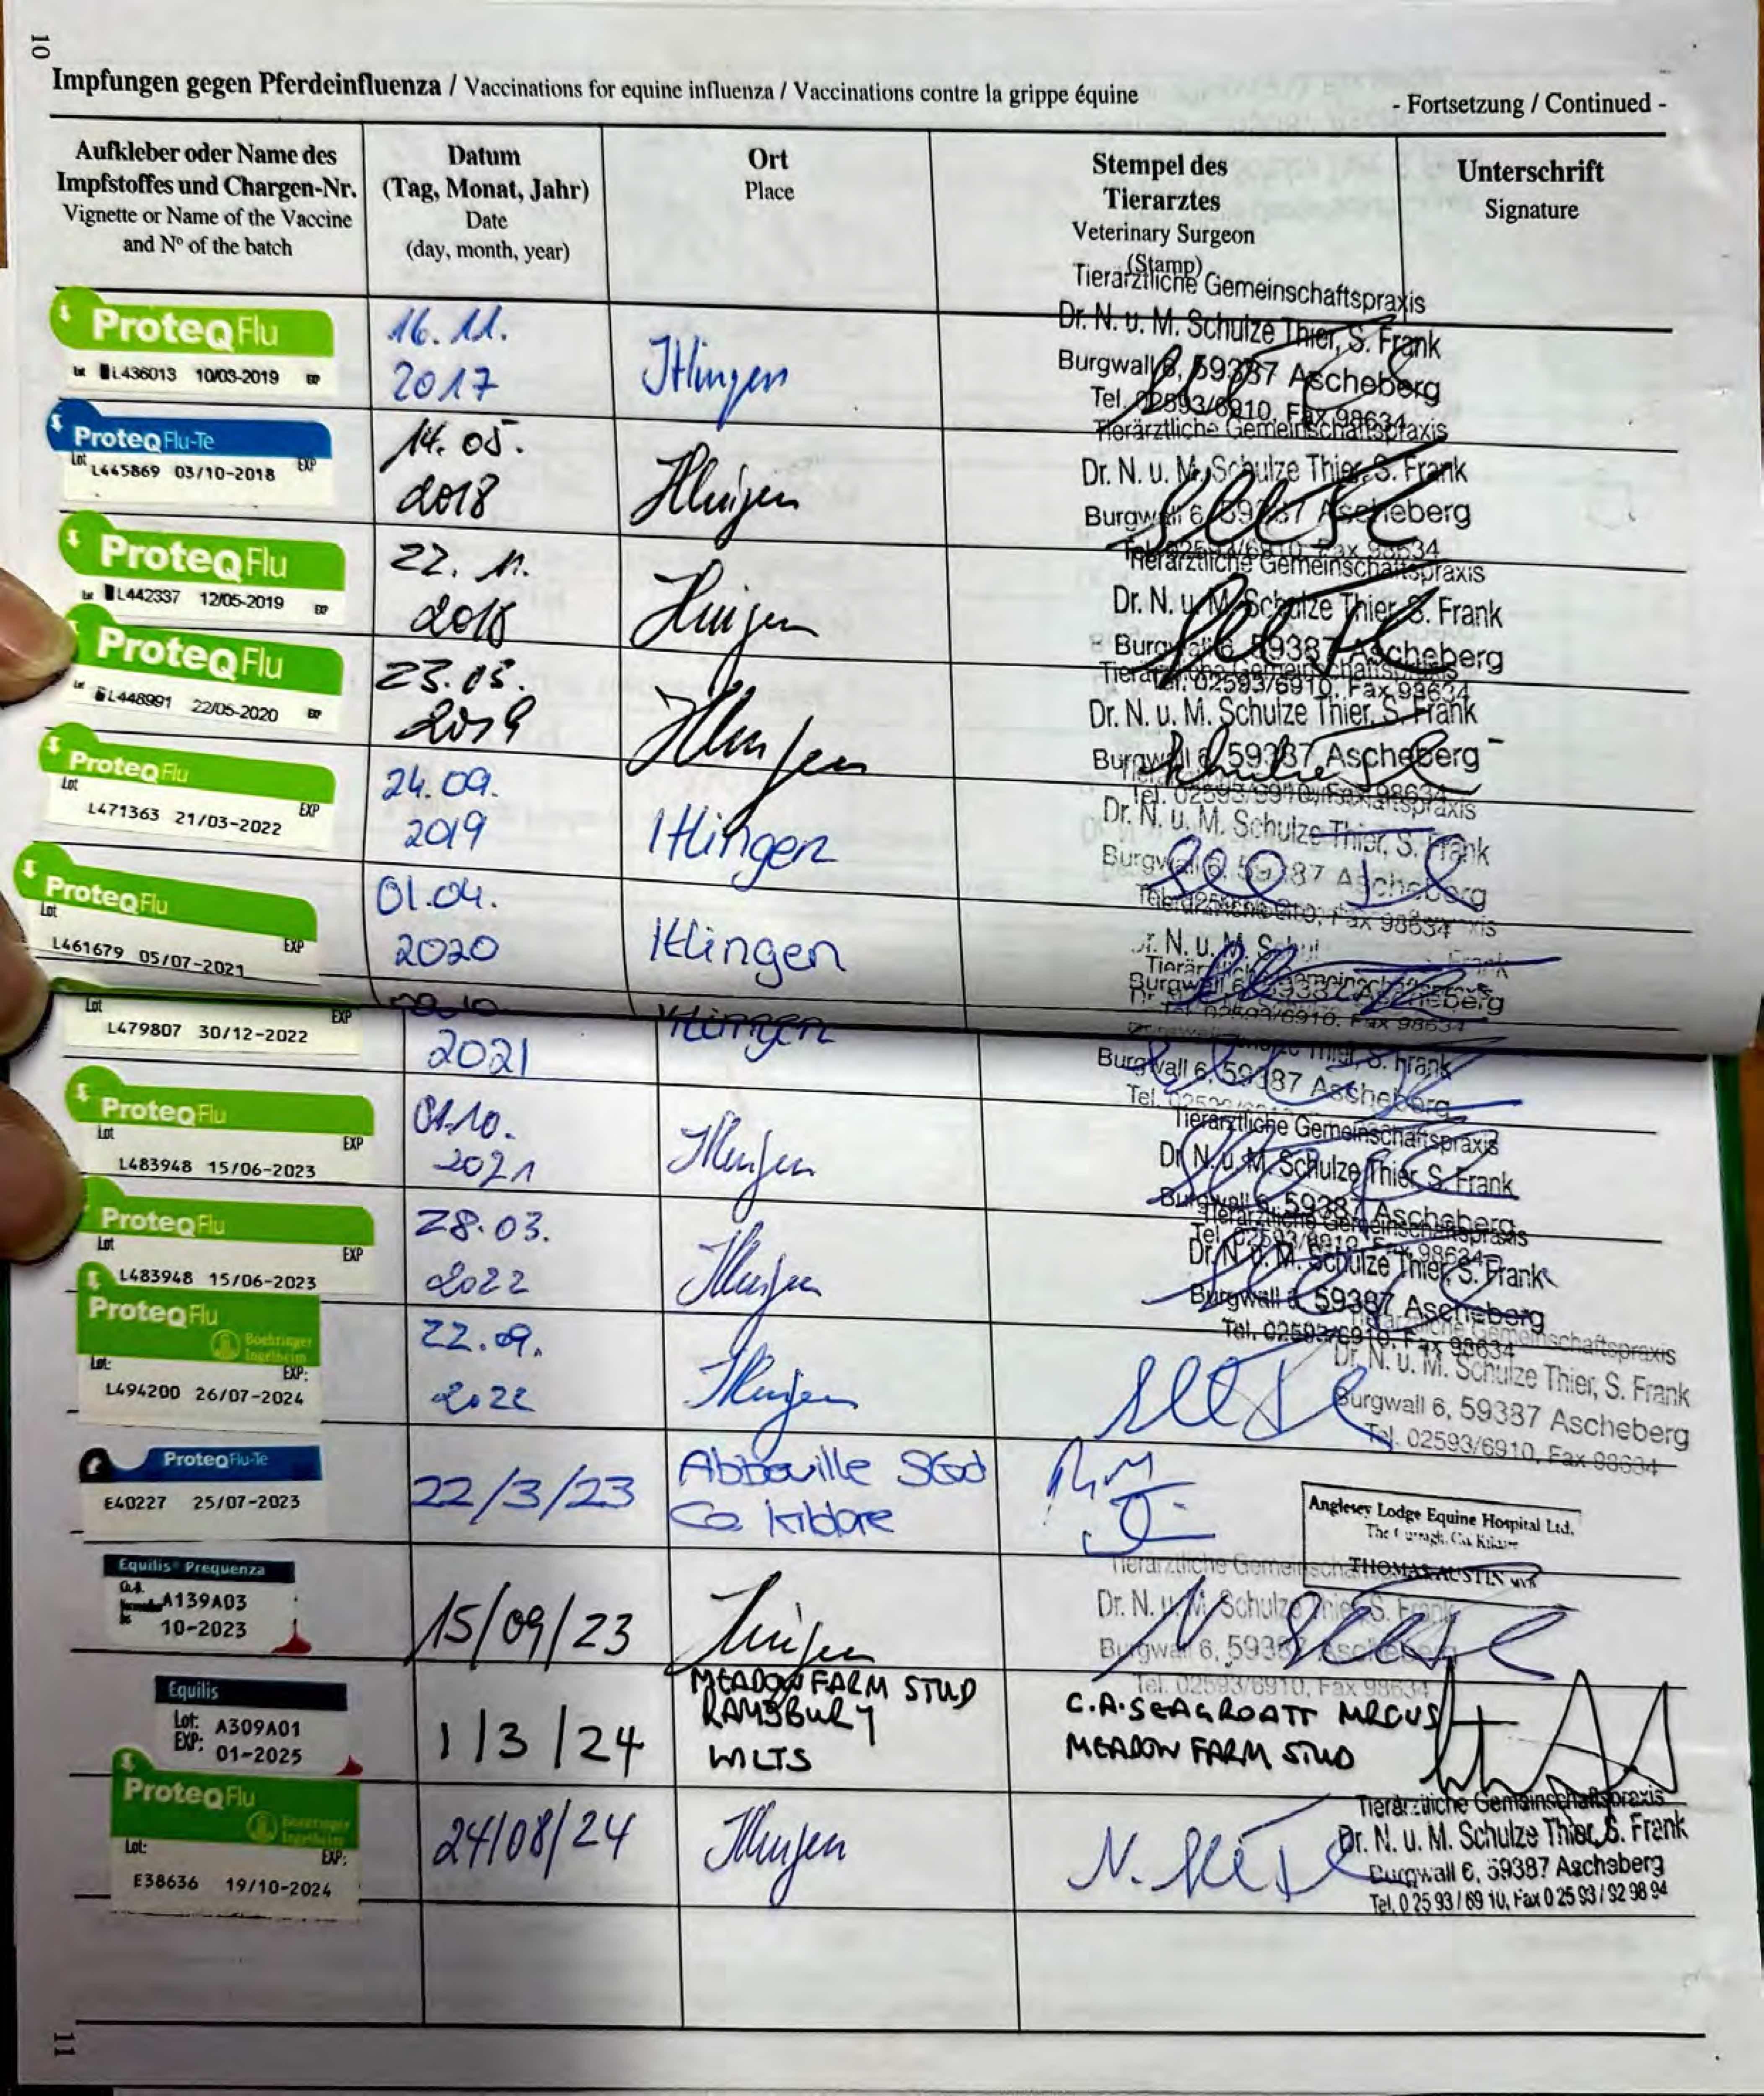 10
Impfungen gegen Pferdeinfluenza / Vaccinations for equine influenza / Vaccinations contre la grippe équine
- Fortsetzung / Continued -
Aufkleber oder Name des
Impfstoffes und Chargen-Nr.
Vignette or Name of the Vaccine
and Nº of the batch
Datum
(Tag, Monat, Jahr)
Date
(day, month, year)
Ort
Place
Stempel des
Tierarztes
Veterinary Surgeon
(Stamp)
Unterschrift
Signature
ProteqFlu
Lot L436013 10/03-2019 EXP
16.11.
2017
Itlingen
Tierärztliche Gemeinschaftspraxis
Dr. N. u. M. Schulze Thier, S. Frank
Burgwall 6, 59387 Ascheberg
Tel. 02593/6910, Fax 98634
ProteqFlu-Te
Lot L445869 03/10-2018 EXP
14.05.
2018
Itlingen
Tierärztliche Gemeinschaftspraxis
Dr. N. u. M. Schulze Thier, S. Frank
Burgwall 6, 59387 Ascheberg
Tel. 02593/6910, Fax 98634
ProteqFlu
Lot L442337 12/05-2019 EXP
22.11.
2018
Itlingen
Tierärztliche Gemeinschaftspraxis
Dr. N. u. M. Schulze Thier, S. Frank
Burgwall 6, 59387 Ascheberg
Tel. 02593/6910, Fax 98634
ProteqFlu
Lot L448991 22/05-2020 EXP
2019
Itlingen
Tierärztliche Gemeinschaftspraxis
Dr. N. u. M. Schulze Thier, S. Frank
Burgwall 6, 59387 Ascheberg
Tel. 02593/6910, Fax 98634
ProteqFlu
Lot EXP
L471363 21/03-2022
24.09.
2019
Itlingen
Dr. N. u. M. Schulze Thier, S. Frank
Burgwall 6, 59387 Ascheberg
Fax 98634
ProteqFlu
Lot EXP
L461679 05/07-2021
01.04.
2020
Itlingen
Dr. N. u. M. Schul Frank
Burgwall 6, 59387 Ascheberg
Tel. 02593/6910, Fax 98634
Lot EXP
L479807 30/12-2022
2021
Itlingen
Burgwall 6, 59387 Ascheberg
ProteqFlu
Lot EXP
L483948 15/06-2023
01.10.
2021
Itlingen
Tierärztliche Gemeinschaftspraxis
Dr. N. u. M. Schulze Thier, S. Frank
Burgwall 6, 59387 Ascheberg
Tel. 02593/6910, Fax 98634
ProteqFlu
Lot EXP
L483948 15/06-2023
28.03.
2022
Itlingen
Tierärztliche Gemeinschaftspraxis
Dr. N. u. M. Schulze Thier, S. Frank
Burgwall 6, 59387 Ascheberg
Tel. 02593/6910, Fax 98634
ProteqFlu
Boehringer
Ingelheim
Lot: EXP:
L494200 26/07-2024
22.09.
2022
Itlingen
Tierärztliche Gemeinschaftspraxis
Dr. N. u. M. Schulze Thier, S. Frank
Burgwall 6, 59387 Ascheberg
Tel. 02593/6910, Fax 98634
ProteqFlu-Te
E40227 25/07-2023
22/3/23
Abbeville Stud
Co Kildare
Anglesey Lodge Equine Hospital Ltd.
The Curragh, Co. Kildare
THOMAS AUSTIN MVB
Equilis® Prequenza
A139A03
10-2023
15/09/23
Itlingen
Tierärztliche Gemeinschaftspraxis
Dr. N. u. M. Schulze Thier, S. Frank
Burgwall 6, 59387 Ascheberg
Tel. 02593/6910, Fax 98634
Equilis
Lot: A309A01
EXP: 01-2025
1/3/24
MEADOW FARM STUD
RAMSBURY
WILTS
C.A. SEAGROATT MRCVS
MEADOW FARM STUD
ProteqFlu
Boehringer
Ingelheim
Lot: EXP:
E38636 19/10-2024
24/08/24
Itlingen
Tierärztliche Gemeinschaftspraxis
Dr. N. u. M. Schulze Thier, S. Frank
Burgwall 6, 59387 Ascheberg
Tel. 0 25 93 / 69 10, Fax 0 25 93 / 92 98 94
11